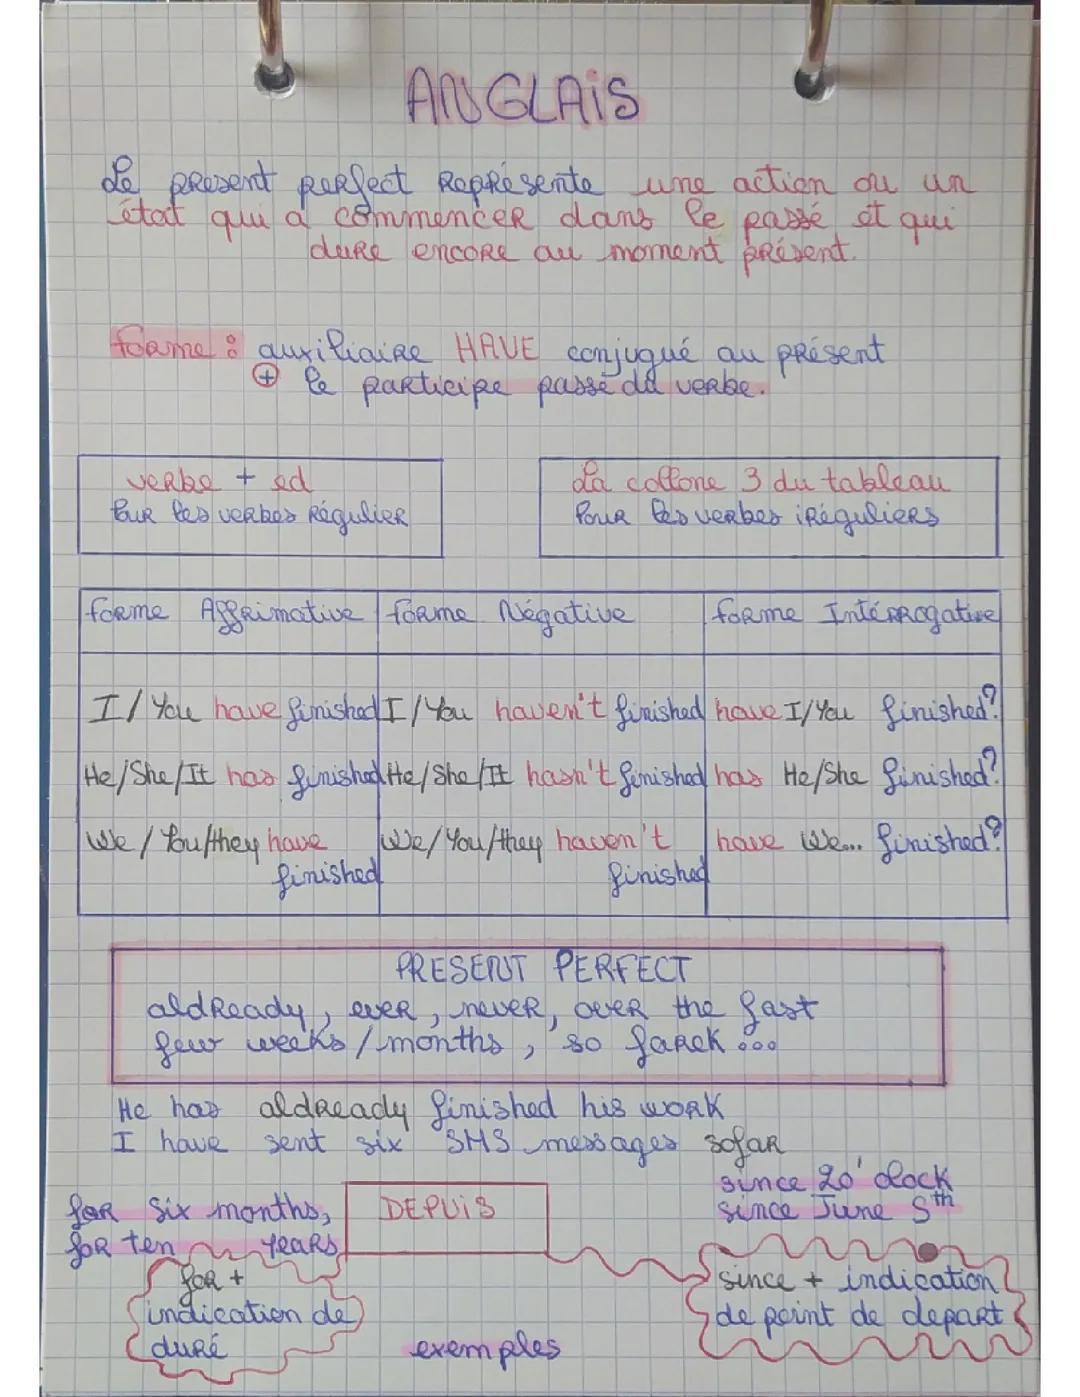 ANGLAiS
Le present perfect Représente une action ou un
état qui a commencer dans le passé et qui
dure encore au moment présent.
forme : auxiliaire HAVE conjugué au présent
+ le participe passé du verbe.
verbe + ed
Pour les verbes Régulier
La collone 3 du tableau
Pour les verbes iréguliers
forme Affrimative forme Négative forme Intérrogative
I / You have finished I / You haven't finished have I/You finished?
He/She/It has finished He/She/It hasn't finished has He/She finished?
We / You/they have We/You/they haven't have We... finished?
finished finished
PRESENT PERFECT
aldready, ever, never, over the fast
few weeks / months, so farek ...
He has aldready finished his work
I have sent six SMS messages sofar
since 20'clock
for six months, DEPUiS since June 5th
for ten years
for + since + indication
indication de de point de depart
duré exemples